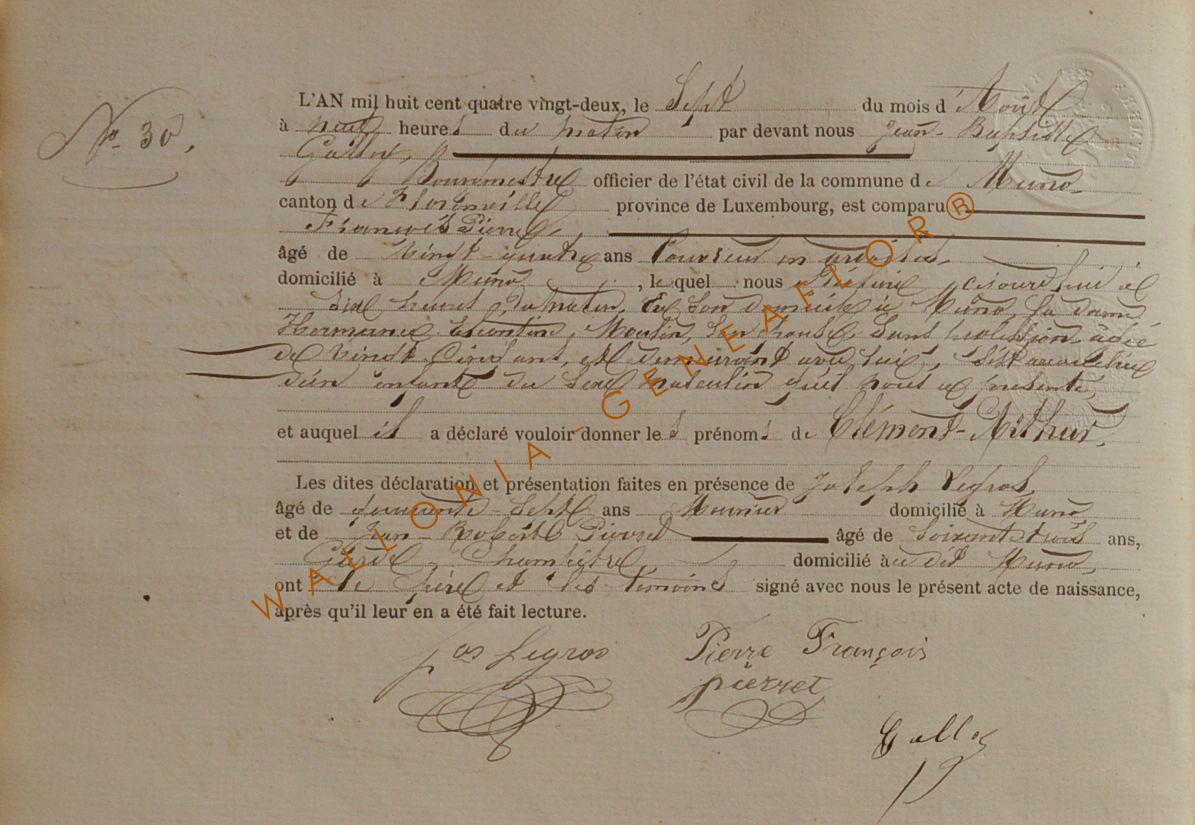 No 30.
L'AN mil huit cent quatre vingt-deux, le Sept du mois d'Août
à neuf heures du matin par devant nous Jean-Baptiste
Galloy,
Bourgmestre officier de l'état civil de la commune de Muno
canton de Florenville province de Luxembourg, est comparu
François Pierre,
âgé de Vingt-quatre ans Couvreur en ardoises,
domicilié à Muno, lequel nous a déclaré, qu'aujourd'hui à
Six heures du matin, En son domicile à Muno, la dame
Hermance Léontine, Mousin, Son Epouse, Sans profession, agée
de Vingt Cinq ans, et demeurant avec lui, s'est accouchée
d'un enfant du Sexe masculin qu'il nous a présenté,
et auquel il a déclaré vouloir donner les prénoms de Clément-Arthur,
Les dites déclaration et présentation faites en présence de Joseph Legros
âgé de quarante-Sept ans Meunier domicilié à Muno
et de Jean-Robert Pierret âgé de Soixante trois ans,
Garde Champêtre, domicilié à au dit Muno,
ont le père et les témoins signé avec nous le présent acte de naissance,
après qu'il leur en a été fait lecture.
jos Legros Pierre François
pierret
Galloy
WALLONIA - GENEAFLOR®